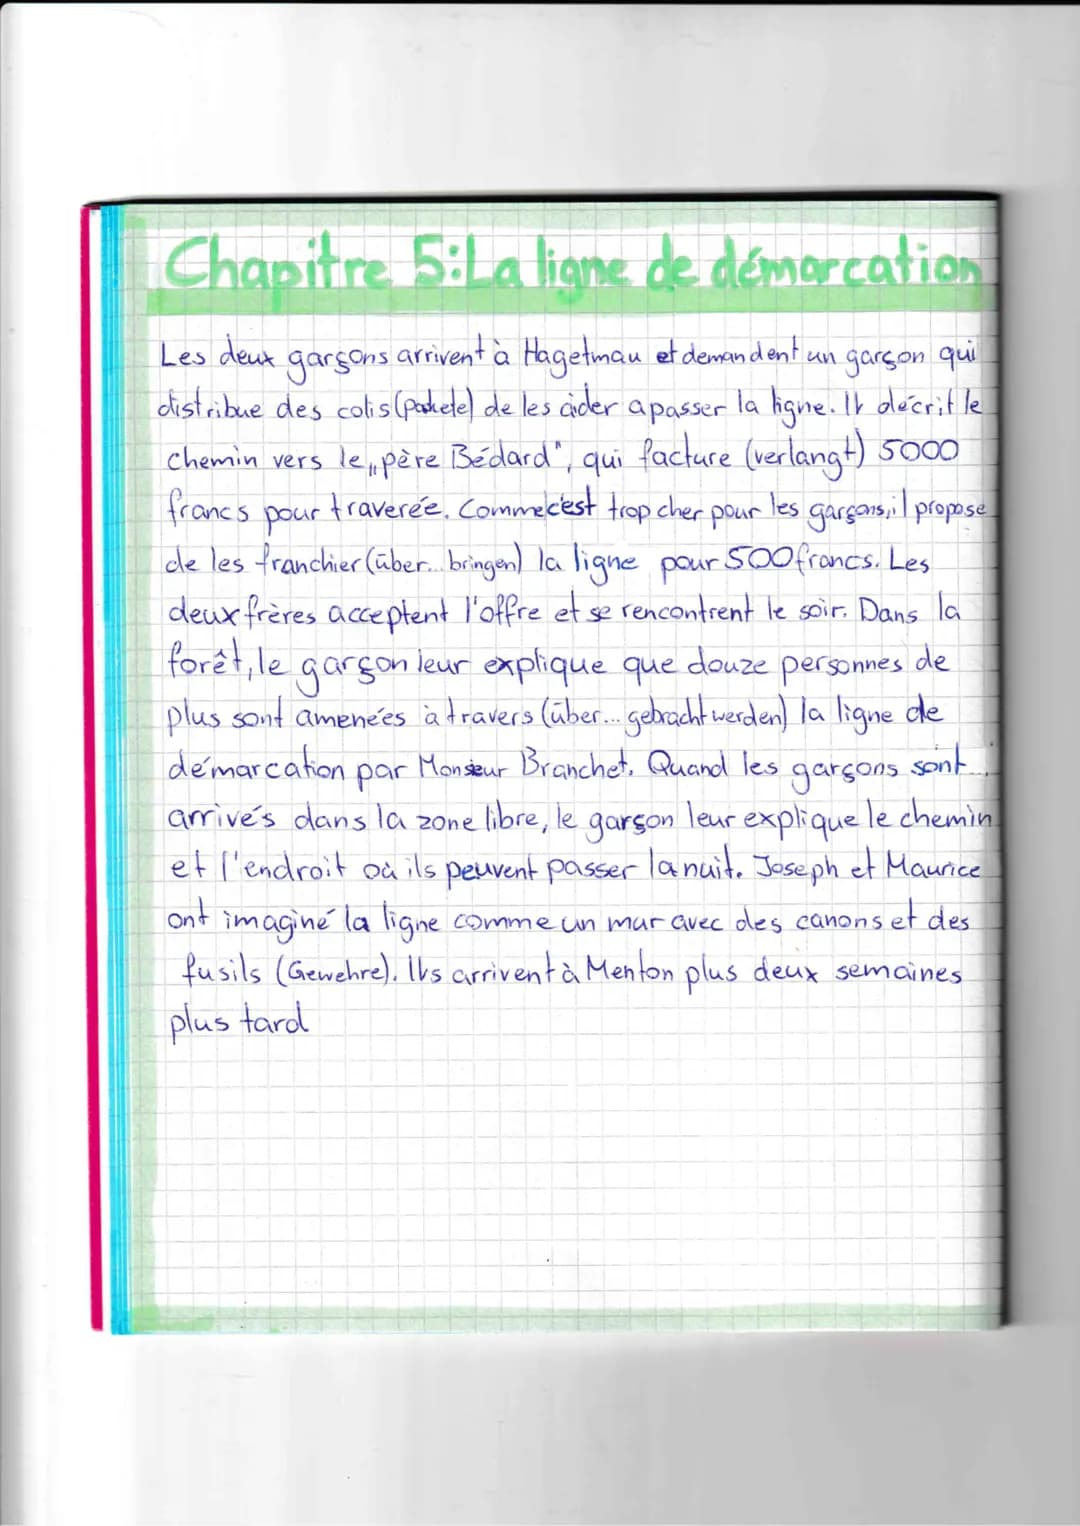 Chapitre 5: La ligne de démarcation
Les deux garçons arrivent à Hagetmau et demandent un garçon qui
distribue des colis (Pakete) de les aider a passer la ligne. Il décrit le
chemin vers le „père Bédard", qui facture (verlangt) 5000
francs pour traverée. Comme c'est trop cher pour les garçons, il propose
de les franchier (über... bringen) la ligne pour 500 francs. Les
deux frères acceptent l'offre et se rencontrent le soir. Dans la
forêt, le garçon leur explique que douze personnes de
plus sont amenées à travers (über... gebracht werden) la ligne de
démarcation par Monsieur Branchet. Quand les garçons sont
arrivés dans la zone libre, le garçon leur explique le chemin
et l'endroit où ils peuvent passer la nuit. Joseph et Maurice
ont imaginé la ligne comme un mur avec des canons et des
fusils (Gewehre). Ils arrivent à Menton plus deux semaines
plus tard